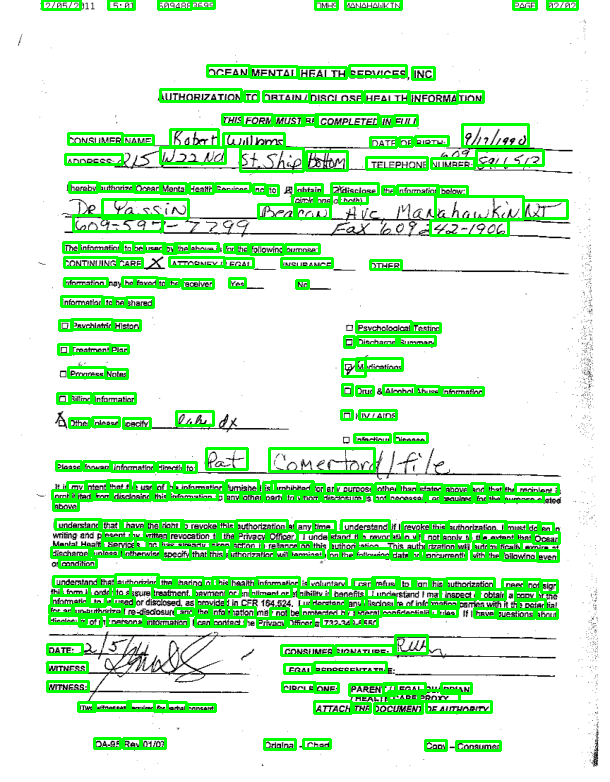 12/05/2011 15:01 6094860695 OMHS MANAHAWKIN PAGE 02/02
OCEAN MENTAL HEALTH SERVICES, INC
AUTHORIZATION TO OBTAIN / DISCLOSE HEALTH INFORMATION
THIS FORM MUST BE COMPLETED IN FULL
CONSUMER NAME: Robert Williams DATE OF BIRTH: 9/17/1990
ADDRESS: 215 W 22 Nd St. Ship Bottom TELEPHONE NUMBER: 609
I hereby authorize Ocean Mental Health Services, Inc to obtain disclose the information below:
(circle one or both)
Dr Yassin Beacon Ave, Manahawkin NJ
609-597-7799 Fax 609 242-1906
The information to be used by the above is for the following purpose:
CONTINUING CARE X ATTORNEY / LEGAL INSURANCE OTHER
Information may be faxed to the receiver Yes No
Information to be shared
☐ Psychiatric History ☐ Psychological Testing
☐ Treatment Plan ☐ Discharge Summary
☐ Progress Notes ☑ Medications
☐ Billing Information ☐ Drug & Alcohol Abuse Information
Other, please specify labs, dx ☐ HIV / AIDS
☐ Infectious Disease
Please forward information directly to: Pat Comerford / file
It is my intent that the use of the information furnished is prohibited for any purpose other than stated above and that the recipient is
prohibited from disclosing this information to any other party to whom disclosure is not necessary or required for the purpose stated
above.
I understand that I have the right to revoke this authorization at any time. I understand if I revoke this authorization I must do so in
writing and present my written revocation to the Privacy Officer. I understand the revocation will not apply to the extent that Ocean
Mental Health Services, Inc has already taken action in reliance on this authorization. This authorization will automatically expire at
discharge unless I otherwise specify that this authorization will terminate on the following date or concurrently with the following event
or condition
I understand that authorizing the sharing of this health information is voluntary. I can refuse to sign this authorization. I need not sign
this form in order to assure treatment, payment or enrollment or eligibility for benefits. I understand I may inspect or obtain a copy of the
information to be used or disclosed, as provided in CFR 164.524. I understand any disclosure of information carries with it the potential
for an unauthorized re-disclosure and the information may not be protected by federal confidentiality rules. If I have questions about
disclosure of my personal information I can contact the Privacy Officer at 732-349-5550
DATE: 12/5/11 CONSUMER SIGNATURE:
WITNESS LEGAL REPRESENTATIVE:
WITNESS: CIRCLE ONE: PARENT / LEGAL GUARDIAN
/ HEALTH CARE PROXY
Two witnesses required for verbal consent ATTACH THE DOCUMENT OF AUTHORITY
OA-95 Rev 01/07 Original - Chart Copy - Consumer